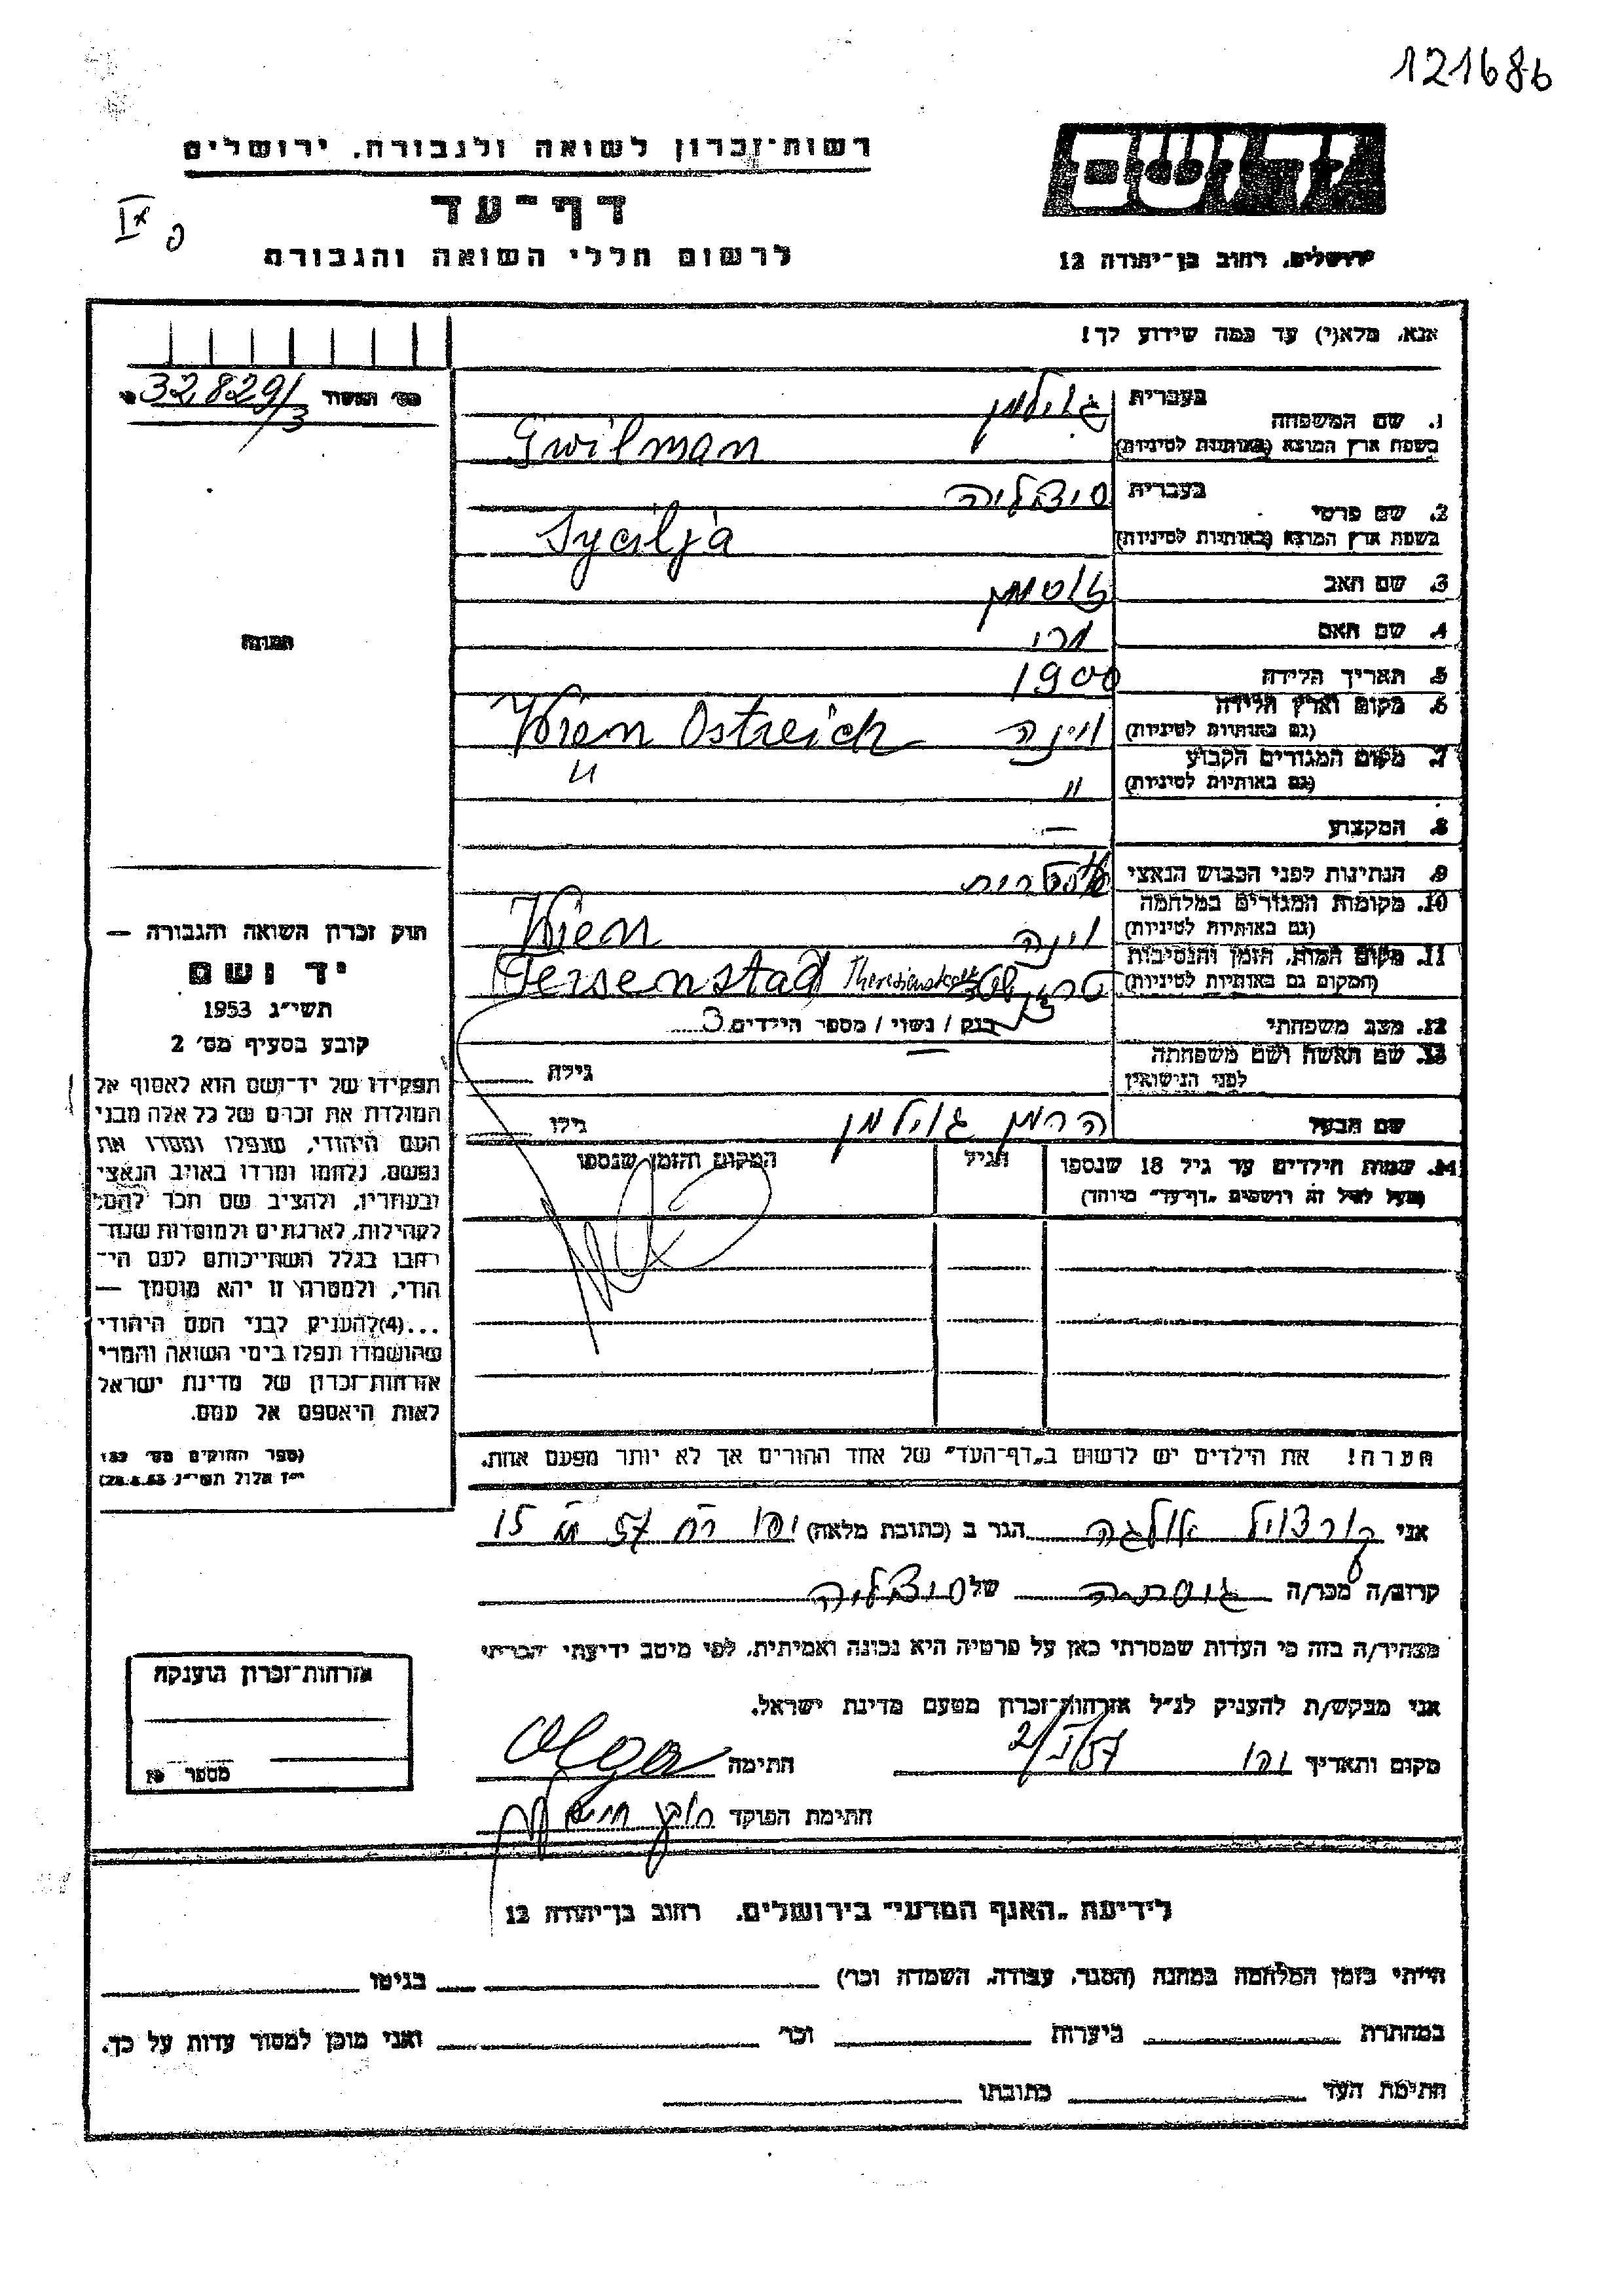 121686
יד ושם
רשות־זכרון לשואה ולגבורה, ירושלים
דף־עד
לרשום חללי השואה והגבורה
ירושלים, רחוב בן־יהודה 12
אנא, מלא(י) עד כמה שידוע לך!
מס׳ 32829/3
1. שם המשפחה
בעברית גוילמן
בשפת ארץ המוצא (באותיות לטיניות) Gwilman
2. שם פרטי
בעברית סיצליה
בשפת ארץ המוצא (באותיות לטיניות) Sycilja
3. שם האב
4. שם האם מרי
5. תאריך הלידה 1900
6. מקום וארץ הלידה
(גם באותיות לטיניות) וינה Wien Ostreich
7. מקום המגורים הקבוע
(גם באותיות לטיניות) " "
8. המקצוע —
9. הנתינות לפני הכבוש הנאצי אוסטרית
10. מקומות המגורים במלחמה
(גם באותיות לטיניות) וינה Wien
11. מקום המות, הזמן והנסיבות
(המקום גם באותיות לטיניות) Theresienstadt
12. מצב משפחתי רווק / נשוי / מספר הילדים 3
13. שם האשה ושם משפחתה
לפני הנישואין — גילה
שם הבעל הרמן גוילמן גילו
14. שמות הילדים עד גיל 18 שנספו
(מעל לגיל זה רושמים „דף־עד״ מיוחד)
הגיל
המקום והזמן שנספו
הערה! את הילדים יש לרשום ב„דף־העד״ של אחד ההורים אך לא יותר מפעם אחת.
תמונה
חוק זכרון השואה והגבורה —
יד ושם
תשי״ג 1953
קובע בסעיף מס׳ 2
תפקידו של יד־ושם הוא לאסוף אל
המולדת את זכרם של כל אלה מבני
העם היהודי, שנפלו ומסרו את
נפשם, נלחמו ומרדו באויב הנאצי
ובעוזריו, ולהציב שם וזכר להם,
לקהילות, לארגונים ולמוסדות שנח־
רבו בגלל השתייכותם לעם הי־
הודי, ולמטרה זו יהא מוסמך —
...(4) להעניק לבני העם היהודי
שהושמדו ונפלו בימי השואה והמרי
אזרחות־זכרון של מדינת ישראל
לאות היאספם אל עמם.
(ספר החוקים מס׳ 132
י״ז אלול תשי״ג 28.8.53)
אני אולגה הגר ב (כתובת מלאה) יפו רח 57 מ 15
קרוב/ה מכר/ה גיסתה של סיצליה
מצהיר/ה בזה כי העדות שמסרתי כאן על פרטיה היא נכונה ואמיתית, לפי מיטב ידיעתי והכרתי
אני מבקש/ת להעניק לנ״ל אזרחות־זכרון מטעם מדינת ישראל.
מקום ותאריך יפו 2/I/57 חתימה Olga
חתימת הפוקד
אזרחות־זכרון הוענקה
מספר
לידיעת „האגף המדעי״ בירושלים, רחוב בן־יהודה 12
הייתי בזמן המלחמה במחנה (הסגר, עבודה, השמדה וכו׳) בגיטו
במחתרת ביערות וכו׳ ואני מוכן למסור עדות על כך.
חתימת העד כתובתו